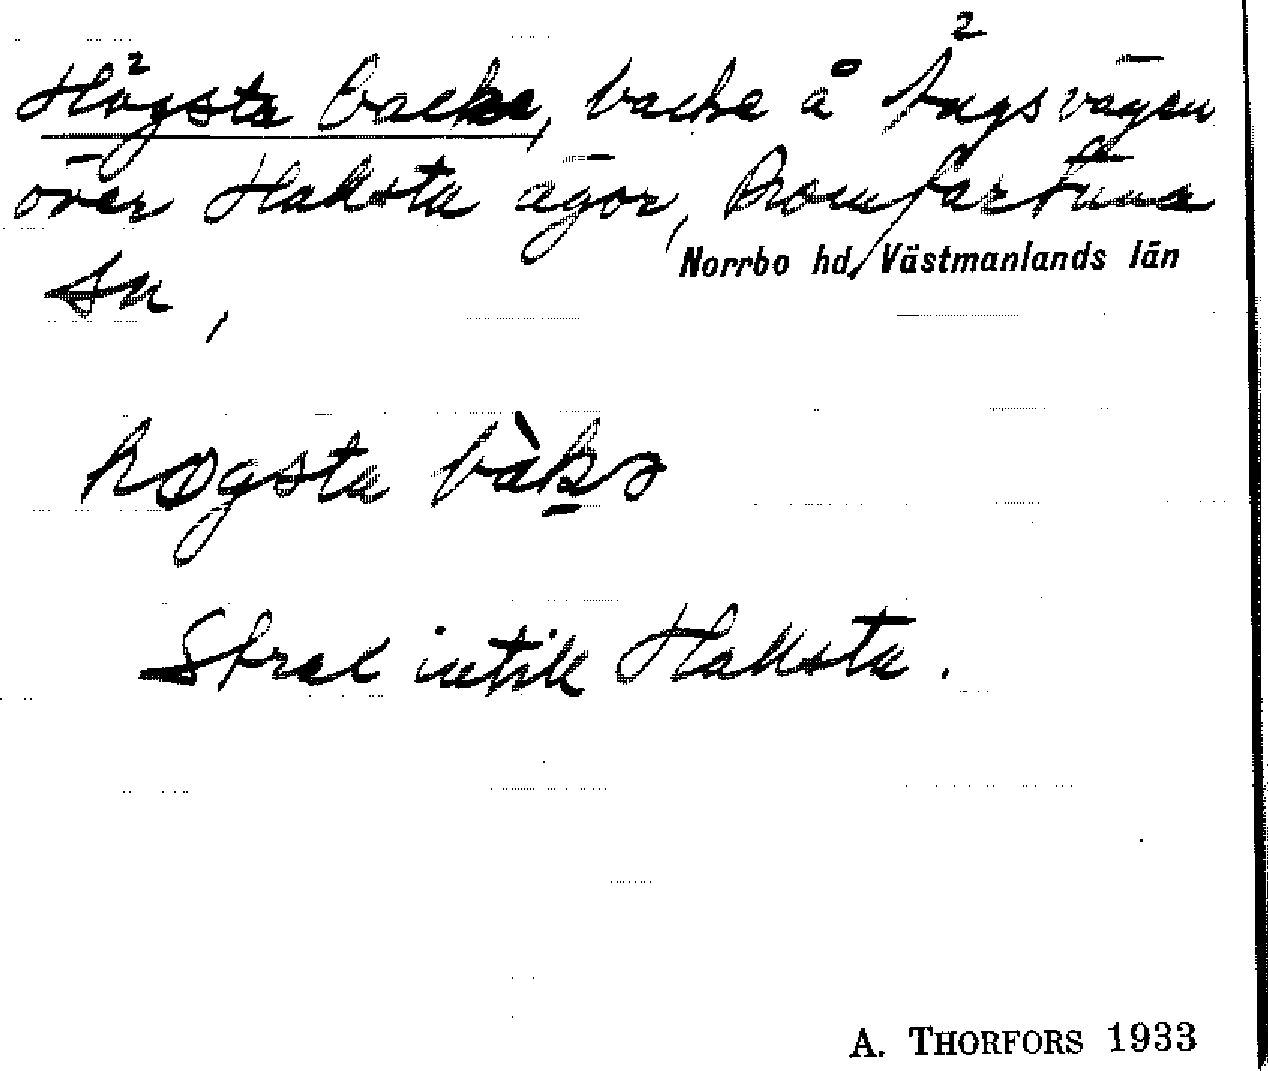 Högsta backe, backe å bygsvägen
över Haksta ägor, Romfartuna
sn,
Norrbo hd, Västmanlands län
høgsta bàkə
Strax intill Haksta.
A. THORFORS 1933